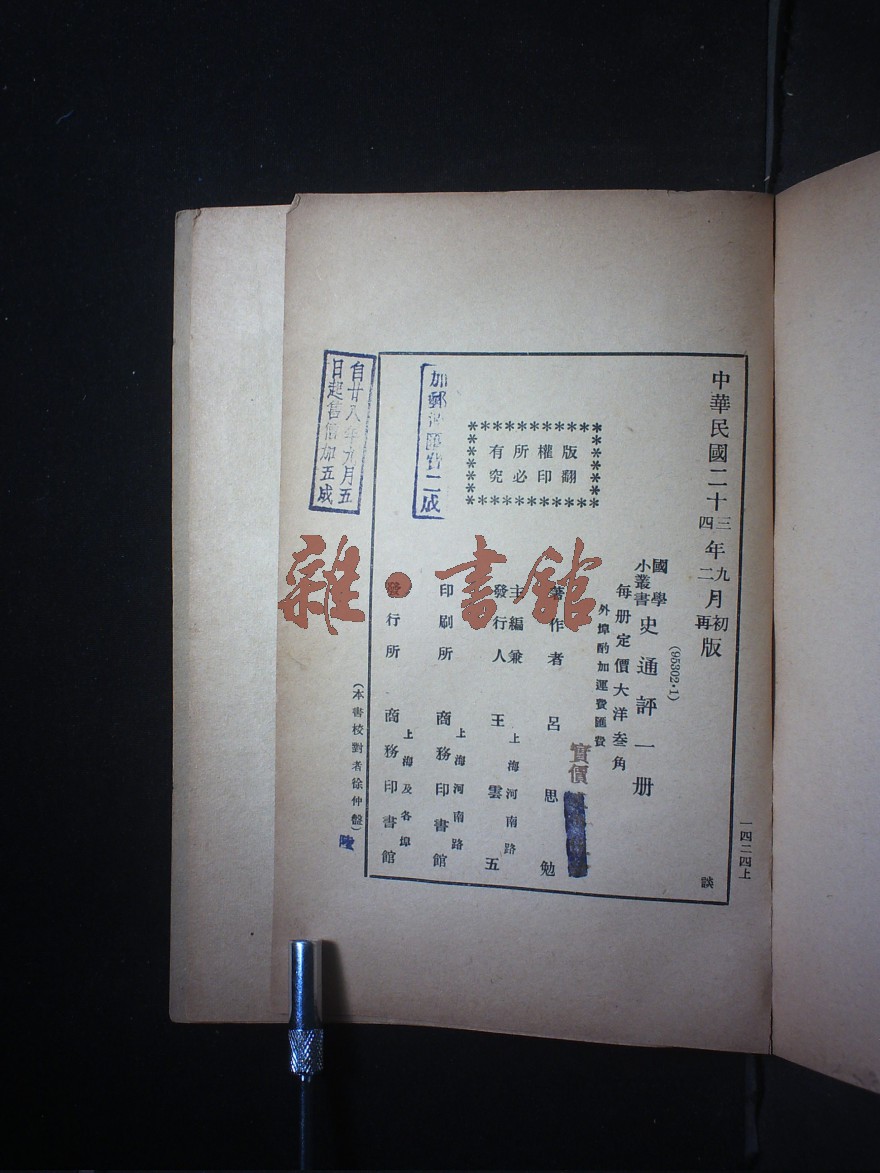 中華民國二十三年九月初版
四二再
(95302·1)
國學小叢書 史通評一册
每册定價大洋叁角
外埠酌加運費匯費
實價
版權所有
翻印必究
著作者 呂思勉
主編兼發行人 王雲五
上海河南路
印刷所 商務印書館
上海河南路
發行所 商務印書館
上海及各埠
(本書校對者徐仲盤)
陸
加郵 匯費二成
自廿八年九月五
日起售價加五成
一四二四上
談
雜·書館